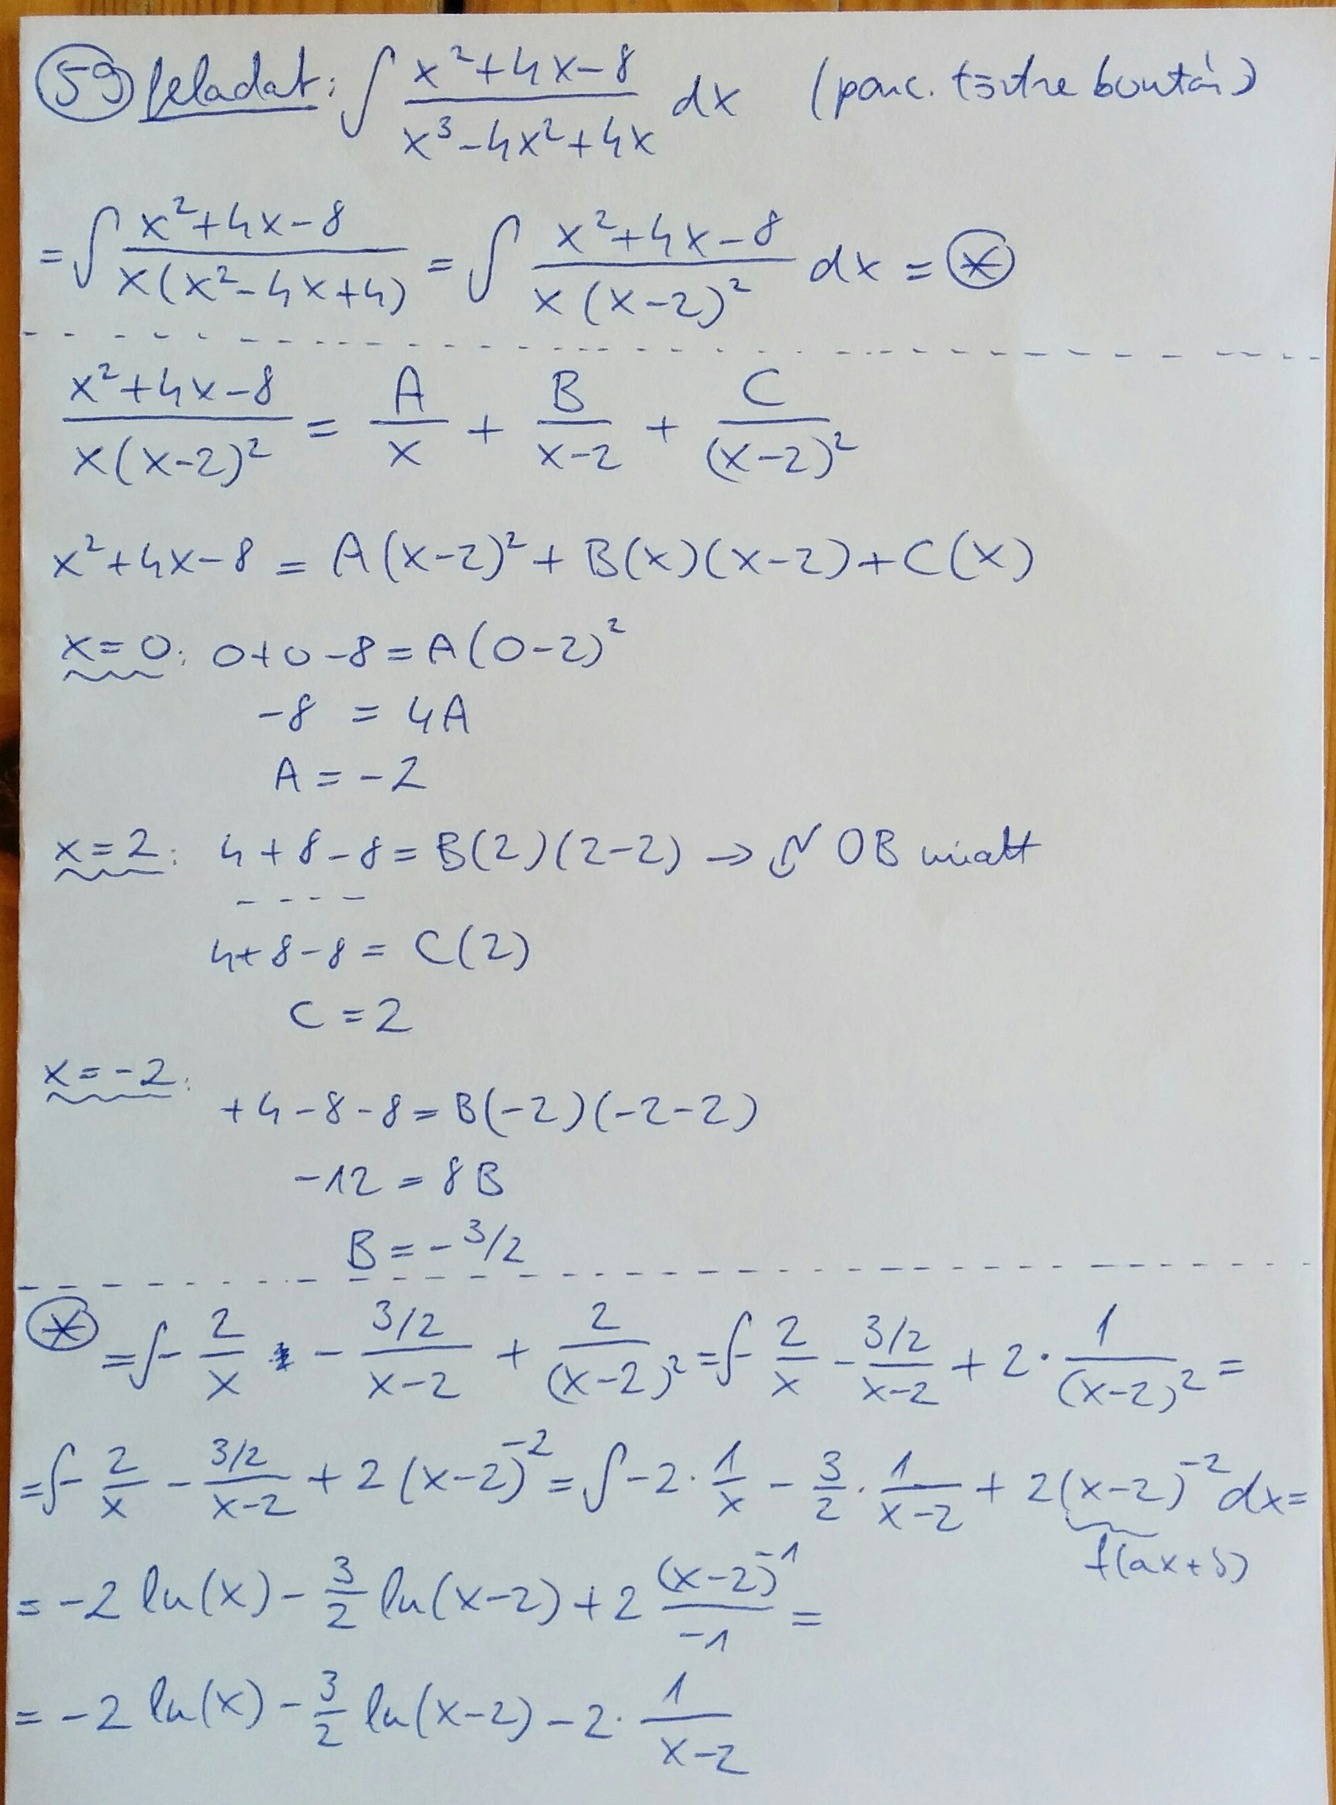 59 feladat: ∫ (x²+4x-8)/(x³-4x²+4x) dx (parc. törtre bontás)
= ∫ (x²+4x-8)/(x(x²-4x+4)) = ∫ (x²+4x-8)/(x(x-2)²) dx = ⊛
(x²+4x-8)/(x(x-2)²) = A/x + B/(x-2) + C/(x-2)²
x²+4x-8 = A(x-2)² + B(x)(x-2) + C(x)
x=0: 0+0-8 = A(0-2)²
-8 = 4A
A = -2
x=2: 4+8-8 = B(2)(2-2) → ↯ 0B miatt
4+8-8 = C(2)
C = 2
x=-2:
+4-8-8 = B(-2)(-2-2)
-12 = 8B
B = -3/2
⊛ = ∫ - 2/x - (3/2)/(x-2) + 2/(x-2)² = ∫ - 2/x - (3/2)/(x-2) + 2·1/(x-2)² =
= ∫ - 2/x - (3/2)/(x-2) + 2(x-2)⁻² = ∫ -2·1/x - 3/2·1/(x-2) + 2(x-2)⁻² dx =
f(ax+b)
= -2 ln(x) - 3/2 ln(x-2) + 2 (x-2)⁻¹/-1 =
= -2 ln(x) - 3/2 ln(x-2) - 2·1/(x-2)